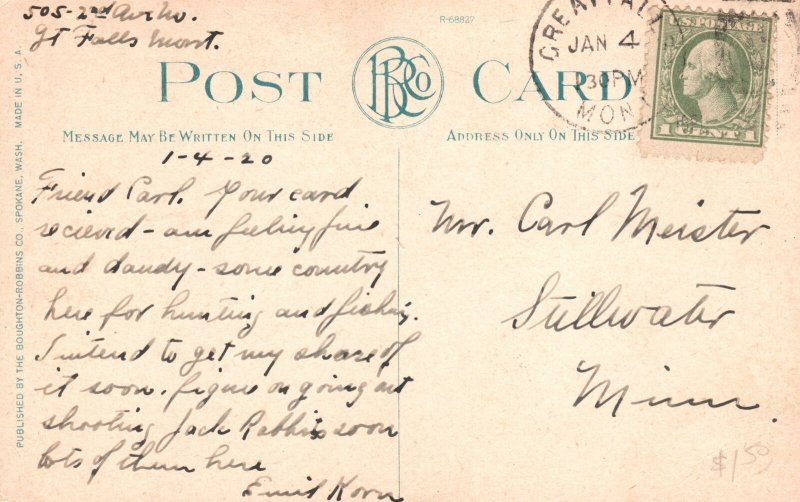 505-2nd Ave No.
Gt Falls Mont.
R-68827
GREAT FALLS
JAN 4
30 PM
MONT
U.S. POSTAGE
1 CENT 1
POST CARD
BRCo
MESSAGE MAY BE WRITTEN ON THIS SIDE
ADDRESS ONLY ON THIS SIDE
PUBLISHED BY THE BOUGHTON-ROBBINS CO., SPOKANE, WASH. MADE IN U.S.A.
1-4-20
Friend Carl. Your card
recieved - am feeling fine
and dandy - some country
here for hunting and fishing.
I intend to get my share of
it soon. figure on going out
shooting Jack Rabbits soon
lots of them here
Emil Korn
Mr. Carl Meister
Stillwater
Minn.
$1.50